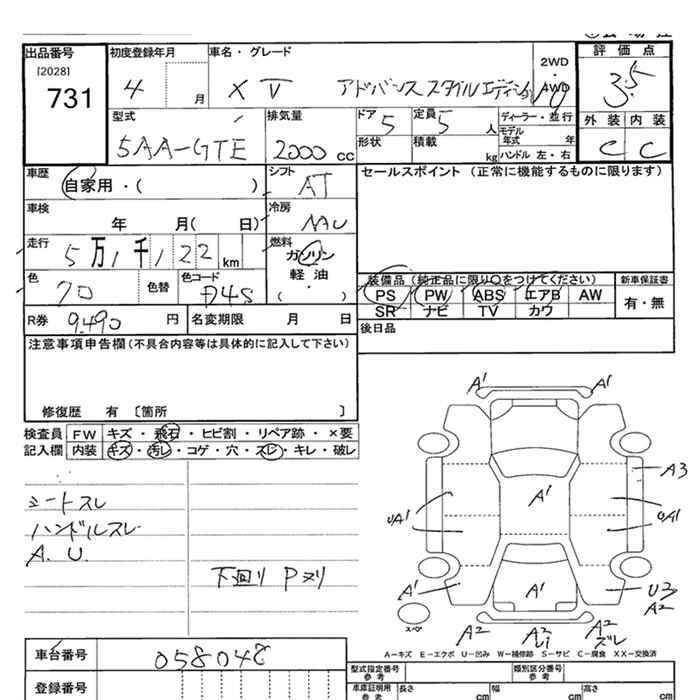 出品番号
[2028]
731
初度登録年月
4 月
車名・グレード
XV アドバンススタイルエディション
2WD
・
4WD
評価点
3.5
外装 内装
C C
型式
5AA-GTE
排気量
2000 cc
ドア
5
定員
5 人
形状
積載
kg
ディーラー・並行
モデル年式 年
ハンドル 左・右
車歴
自家用・( )
シフト
AT
セールスポイント (正常に機能するものに限ります)
車検
年 月( 日)
冷房
走行
5万1千122 km
燃料
ガソリン
軽油
( ・ )
色
色替
色コード
D4S
装備品 (純正品に限り○をつけてください)
PS PW ABS エアB AW
SR ナビ TV カワ
新車保証書
有・無
R券 9,490 円
名変期限 月 日
後日品
注意事項申告欄(不具合内容等は具体的に記入して下さい)
修復歴 有 〔箇所 〕
検査員
記入欄
FW キズ・飛石・ヒビ割・リペア跡・×要
内装 キズ・汚レ・コゲ・穴・スレ・キレ・破レ
シートスレ
ハンドルスレ
A. U.
下回り Pヌリ
A1 A1
A3
A1
UA1 UA1
A1 A1 U3
A2
スペ
A2 A2 A2
Ui ズレ
A-キズ E-エクボ U-凹み W-補修跡 S-サビ C-腐食 XX-交換済
車台番号
058048
登録番号
型式指定番号
参考
類別区分番号
参考
車庫証明用
参考
長さ cm
幅 cm
高さ cm